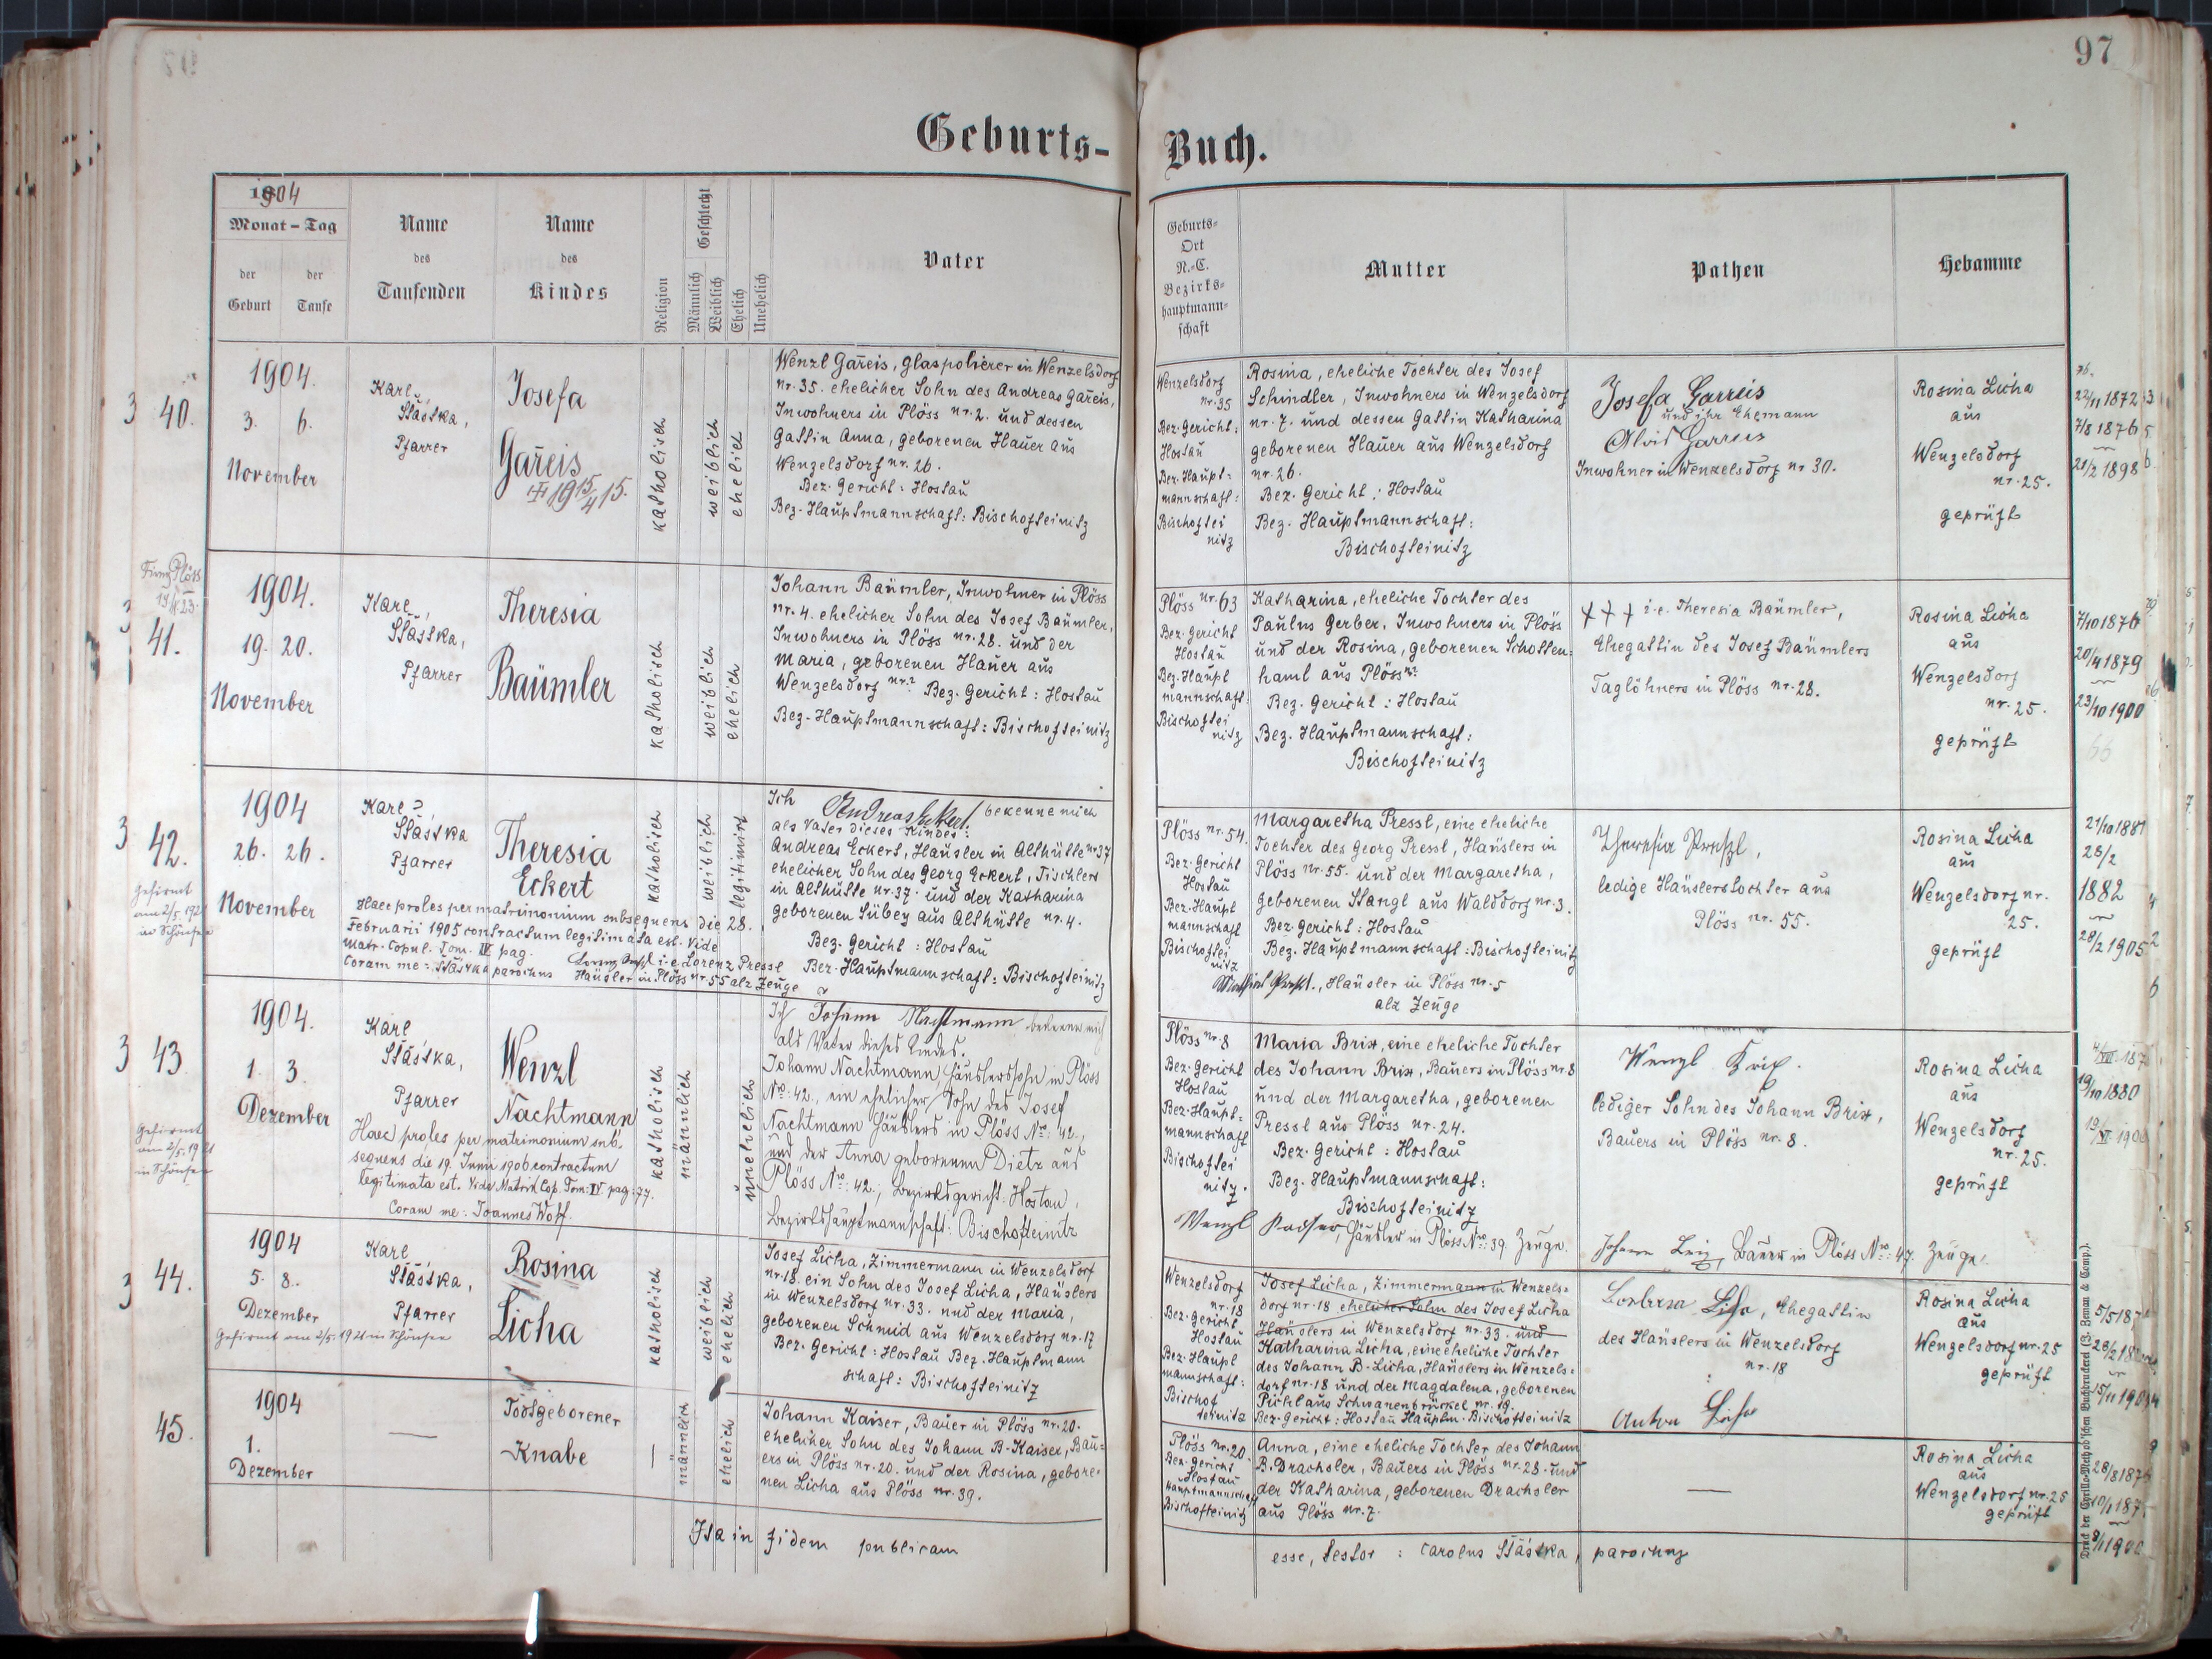 97
Geburts-Buch.
1904
Monat – Tag
der Geburt
der Taufe
Name des Taufenden
Name des Kindes
Religion
Geschlecht
Männlich
Weiblich
Ehelich
Unehelich
Vater
Geburts-Ort N.-C. Bezirks-hauptmann-schaft
Mutter
Pathen
Hebamme
3 40.
1904.
3. 6.
November
Karl
Šťástka,
Pfarrer
Josefa
Gareis
1915 4/15.
katholisch
weiblich
ehelich
Wenzl Gareis, Glaspolierer in Wenzelsdorf
nr. 35. ehelicher Sohn des Andreas Gareis,
Inwohners in Plöss nr. 2. und dessen
Gattin Anna, geborenen Hauer aus
Wenzelsdorf nr. 26.
Bez. Gericht: Hostau
Bez.-Hauptmannschaft: Bischofteinitz
Wenzelsdorf
nr. 35
Bez. Gericht:
Hostau
Bez. Haupt-
mannschaft:
Bischoftei
nitz
Rosina, eheliche Tochter des Josef
Schindler, Inwohners in Wenzelsdorf
nr. 7. und dessen Gattin Katharina
geborenen Hauer aus Wenzelsdorf
nr. 26.
Bez. Gericht: Hostau
Bez. Hauptmannschaft:
Bischofteinitz
Josefa Garreis
und ihr Ehemann
Alois Garreis
Inwohner in Wenzelsdorf nr 30.
Rosina Licha
aus
Wenzelsdorf
nr. 25.
geprüft
22/11 1872
7/8 1876
21/2 1898
Plöss
3 41.
1904.
19. 20.
November
Karl
Šťástka,
Pfarrer
Theresia
Bäumler
katholisch
weiblich
ehelich
Johann Bäumler, Inwohner in Plöss
nr. 4. ehelicher Sohn des Josef Bäumler,
Inwohners in Plöss nr. 28. und der
Maria, geborenen Hauer aus
Wenzelsdorf nr.? Bez. Gericht: Hostau
Bez-Hauptmannschaft: Bischofteinitz
Plöss nr. 63
Bez. Gericht
Hostau
Bez. Haupt
mannschaft:
Bischoftei
nitz
Katharina, eheliche Tochter des
Paulus Gerber, Inwohners in Plöss
und der Rosina, geborenen Schotten-
haml aus Plöss nr:
Bez. Gericht: Hostau
Bez. Hauptmannschaft:
Bischofteinitz
+++ i.e. Theresia Bäumler,
Ehegattin des Josef Bäumlers
Taglöhners in Plöss nr. 28.
Rosina Licha
aus
Wenzelsdorf
nr. 25.
geprüft
7/10 1876
20/4 1879
23/10 1900
66
3 42.
Gefirmt
am 2/5. 1921
in Schönsee
1904
26. 26.
November
Karl
Šťástka
Pfarrer
Theresia
Eckert
katholisch
weiblich
legitimirt
Haec proles per matrimonium subsequens die 28.
Februarii 1905 contractum legitimata est. Vide
Matr. Copul. Tom. IV pag.
Coram me: Šťástka parochus
i.e. Lorenz Pressl
Häusler in Plöss nr 55 als Zeuge
Ich Andreas Eckert bekenne mich
als Vater dieses Kindes:
Andreas Eckert, Häusler in Althütte nr 37
ehelicher Sohn des Georg Eckert, Tischlers
in Althütte nr. 37. und der Katharina
geborenen Sübey aus Althütte nr. 4.
Bez. Gericht: Hostau
Bez-Hauptmannschaft: Bischofteinitz
Plöss nr. 54.
Bez. Gericht
Hostau
Bez. Haupt
mannschaft
Bischoftei
nitz
Margaretha Pressl, eine eheliche
Tochter des Georg Pressl, Häuslers in
Plöss nr. 55. und der Margaretha,
geborenen Stangl aus Walddorf nr. 3.
Bez. Gericht: Hostau
Bez. Hauptmannschaft: Bischofteinitz
Häusler in Plöss nr. 5
als Zeuge
Theresia Preßl,
ledige Häuslerstochter aus
Plöss nr. 55.
Rosina Licha
aus
Wenzelsdorf nr.
25.
geprüft
21/10 1881
28/2
1882
28/2 1905
3 43
Gefirmt
am 2/5. 1921
in Schönsee
1904.
1. 3.
Dezember
Karl
Šťástka,
Pfarrer
Wenzl
Nachtmann
Haec proles per matrimonium sub-
sequens die 19. Junii 1906 contractum
legitimata est. Vide Matrik Cop. Tom: IV pag: 77.
Coram me: Joannes Wolf.
katholisch
männlich
unehelich
Ich Johann Nachtmann bekenne mich
als Vater dieses Kindes.
Johann Nachtmann, Häuslerssohn in Plöss
Nro: 42., ein ehelicher Sohn des Josef
Nachtmann Häuslers in Plöss Nro: 42.,
und der Anna geborenen Dietz aus
Plöss Nro: 42.; Bezirksgericht: Hostau,
Bezirkshauptmannschaft: Bischofteinitz
Plöss nr. 8
Bez. Gericht
Hostau
Bez. Haupt-
mannschaft
Bischoftei
nitz.
Maria Brix, eine eheliche Tochter
des Johann Brix, Bauers in Plöss nr. 8
und der Margaretha, geborenen
Pressl aus Plöss nr. 24.
Bez. Gericht: Hostau
Bez. Hauptmannschaft:
Bischofteinitz
Wenzl Häusler in Plöss Nro: 39. Zeuge.
Wenzl Brix.
lediger Sohn des Johann Brix,
Bauers in Plöss nr. 8.
Johann Bauer in Plöss Nro: 47. Zeuge.
Rosina Licha
aus
Wenzelsdorf
nr. 25.
geprüft
19/10 1880
19/VI 1906
3 44.
1904
5. 8.
Dezember
Gefirmt am 2/5. 1921 in Schönsee
Karl
Šťástka,
Pfarrer
Rosina
Licha
katholisch
weiblich
ehelich
Josef Licha, Zimmermann in Wenzelsdorf
nr. 18. ein Sohn des Josef Licha, Häuslers
in Wenzelsdorf nr. 33. und der Maria,
geborenen Schmid aus Wenzelsdorf nr. 17
Bez. Gericht: Hostau Bez. Hauptmann
schaft: Bischofteinitz
Wenzelsdorf
nr. 18
Bez. Gericht
Hostau
Bez. Haupt
mannschaft:
Bischof
teinitz
Josef Licha, Zimmermann in Wenzels-
dorf nr. 18 ehelicher Sohn des Josef Licha
Häuslers in Wenzelsdorf nr. 33. und
Katharina Licha, eine eheliche Tochter
des Johann B. Licha, Häuslers in Wenzels-
dorf nr. 18 und der Magdalena, geborenen
Pichl aus Schwanenbrückel nr. 19.
Bez. Gericht: Hostau Hauptm. Bischofteinitz
Barbara Licha, Ehegattin
des Häuslers in Wenzelsdorf
nr. 18
Anton Licha
Rosina Licha
aus
Wenzelsdorf nr. 25
geprüft
45.
1904
1.
Dezember
—
Todtgeborener
Knabe
—
männlich
ehelich
Johann Kaiser, Bauer in Plöss nr. 20.
ehelicher Sohn des Johann B. Kaiser, Bau-
ers in Plöss nr. 20. und der Rosina, gebore-
nen Licha aus Plöss nr. 39.
Plöss nr. 20.
Bez. Gericht
Hostau
Hauptmannschaft
Bischofteinitz
Anna, eine eheliche Tochter des Johann
B. Drachsler, Bauers in Plöss nr. 28. und
der Katharina, geborenen Drachsler
aus Plöss nr. 7.
—
Rosina Licha
aus
Wenzelsdorf nr. 25
geprüft
Ita in fidem publicam esse, testor: Carolus Šťástka, parochus
Druck der Cyrillo-Method'schen Buchdruckerei (J. Zeman & Comp.).